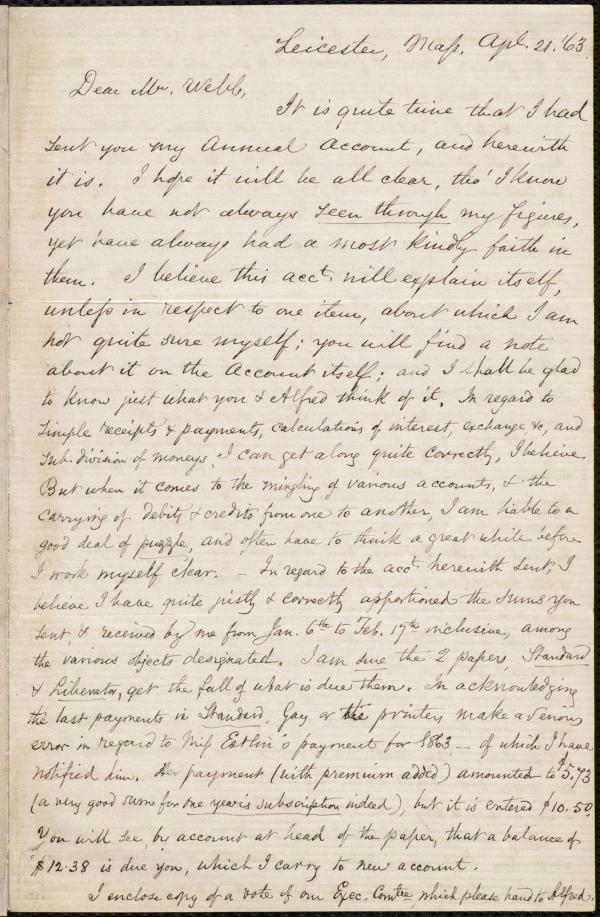 Leicester, Mass. Apl. 21. '63.
Dear Mr. Webb,
It is quite time that I had
sent you my Annual Account, and herewith
it is. I hope it will be all clear, tho' I know
you have not always seen through my figures,
yet have always had a most kindly faith in
them. I believe this acct. will explain itself,
unless in respect to one item, about which I am
not quite sure myself; you will find a note
about it on the Account itself; and I shall be glad
to know just what you & Alfred think of it. In regard to
simple receipts & payments, calculations of interest, exchange &c, and
sub-division of moneys, I can get along quite correctly, I believe.
But when it comes to the mingling of various accounts, & the
carrying of debits & credits from one to another, I am liable to a
good deal of puzzle, and often have to think a great while before
I work myself clear. — In regard to the acct. herewith sent, I
believe I have quite justly & correctly apportioned the sums you
sent, & received by me from Jan. 6th to Feb. 17th inclusive, among
the various objects designated. I am sure the 2 papers, Standard
& Liberator, get the full of what is due them. In acknowledging
the last payments in Standard, Gay or the printers make a serious
error in regard to Miss Estlin's payment for 1863 — of which I have
notified him. Her payment (with premium added) amounted to $5.73
(a very good sum for one year's subscription indeed), but it is entered $10.50.
You will see, by account at head of the paper, that a balance of
$12.38 is due you, which I carry to new account.
I enclose copy of a vote of our Exec. Comtee, which please hand to Alfred.